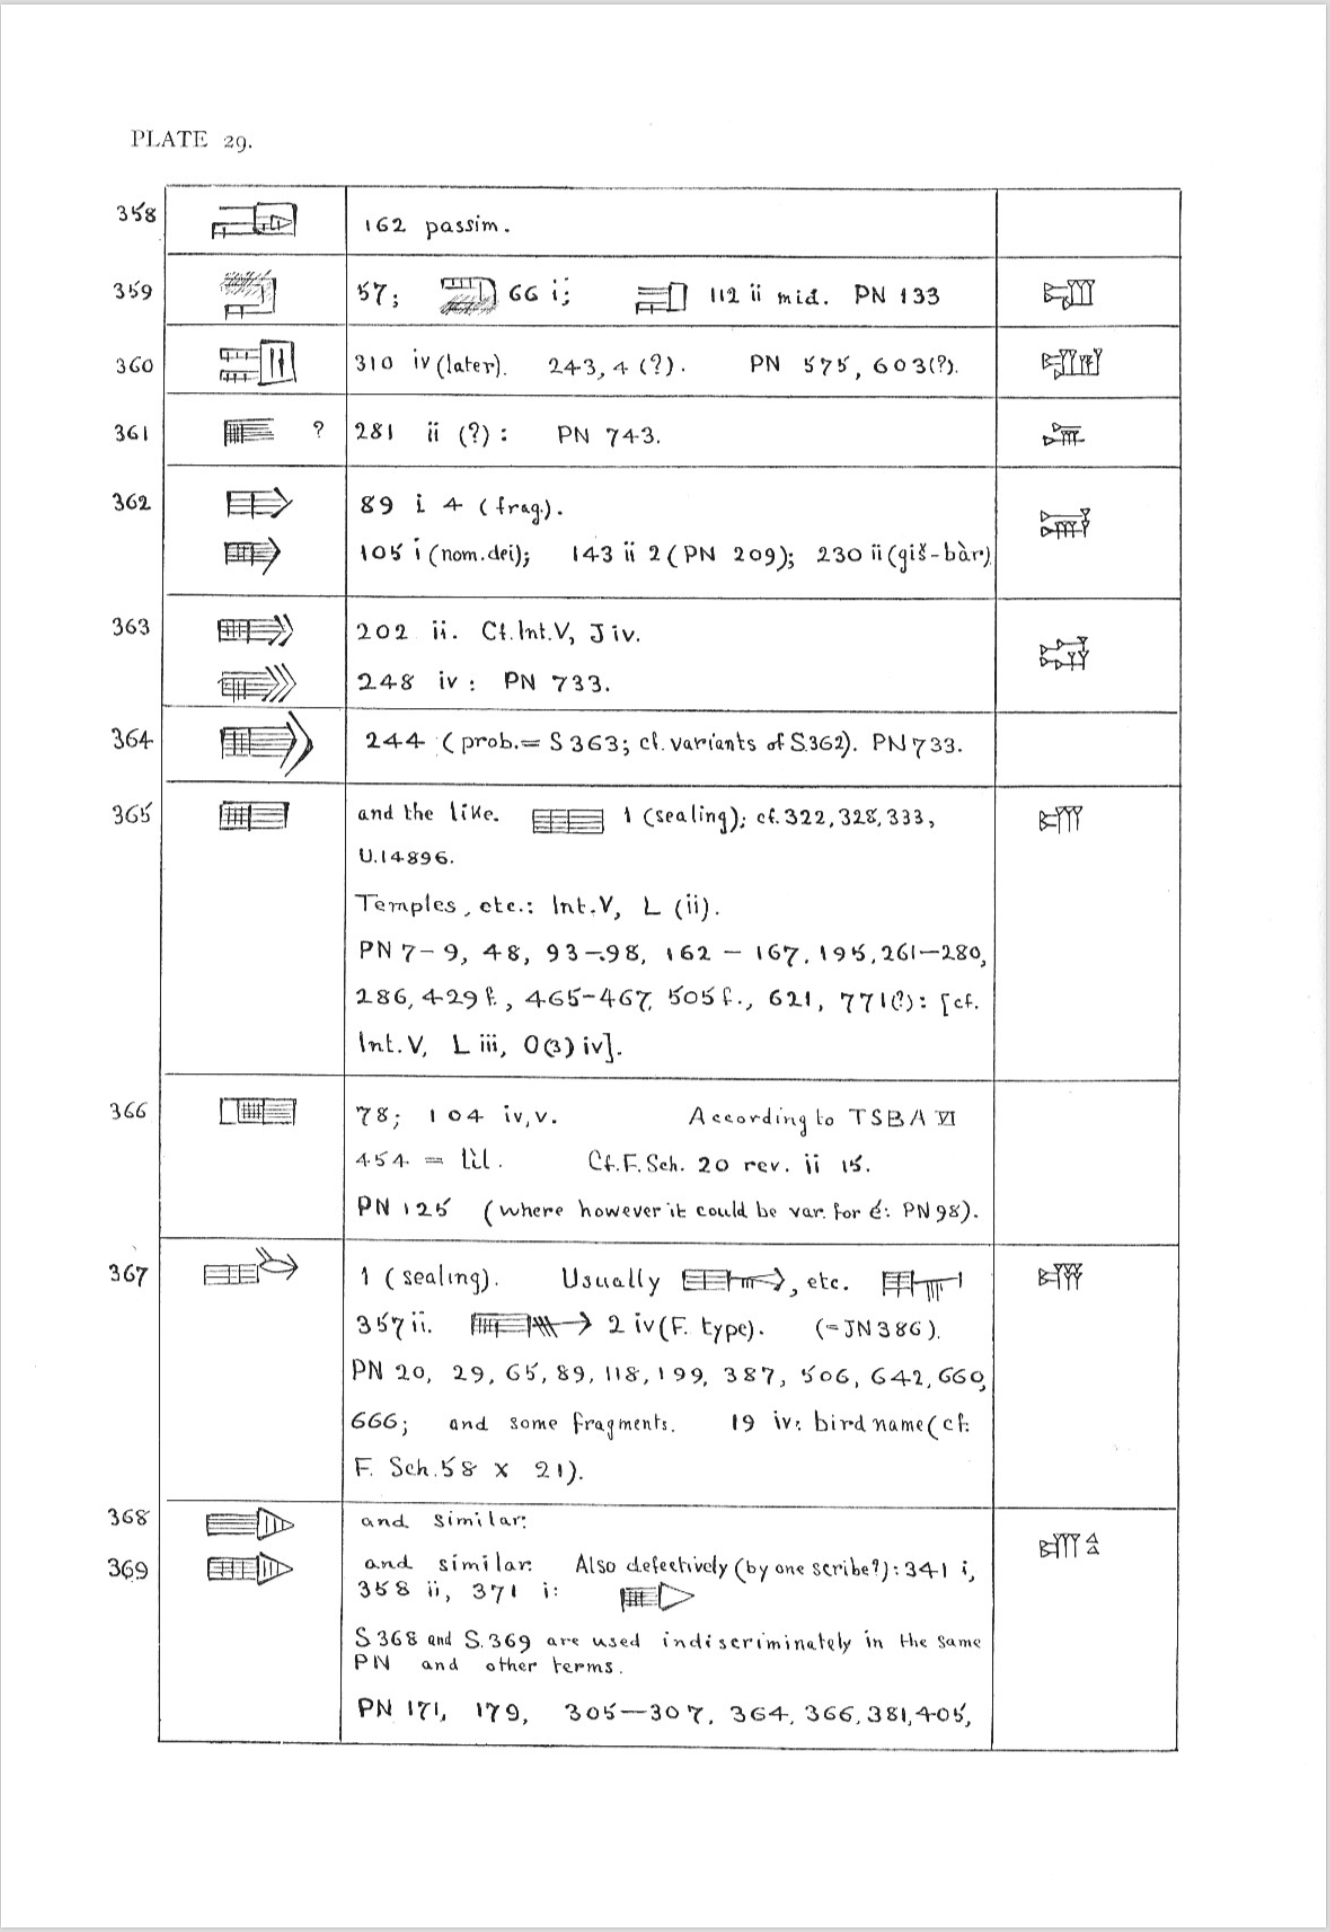 PLATE 29.
358 162 passim.
359 57; 66 i; 112 ii mid. PN 133
360 310 iv (later). 243, 4 (?). PN 575, 603(?).
361 ? 281 ii (?): PN 743.
362 89 i 4 (frag.).
105 i (nom. dei); 143 ii 2 (PN 209); 230 ii (giš-bàr)
363 202 ii. Cf. Int. V, J iv.
248 iv: PN 733.
364 244 (prob. = S 363; cf. variants of S.362). PN 733.
365 and the like. 1 (sealing); cf. 322, 328, 333,
U.14896.
Temples, etc.: Int. V, L (ii).
PN 7–9, 48, 93–98, 162 – 167, 195, 261–280,
286, 429 f., 465–467, 505 f., 621, 771(?): [cf.
Int. V, L iii, O(3) iv].
366 78; 104 iv, v. According to TSBA VI
454 = líl. Cf. F. Sch. 20 rev. ii 15.
PN 125 (where however it could be var. for é: PN 98).
367 1 (sealing). Usually , etc.
357 ii. 2 iv (F. type). (= JN 386).
PN 20, 29, 65, 89, 118, 199, 387, 506, 642, 660,
666; and some fragments. 19 iv: bird name (cf.
F. Sch. 58 x 21).
368 and similar:
369 and similar: Also defectively (by one scribe?): 341 i,
358 ii, 371 i:
S 368 and S. 369 are used indiscriminately in the same
PN and other terms.
PN 171, 179, 305–307, 364, 366, 381, 405,